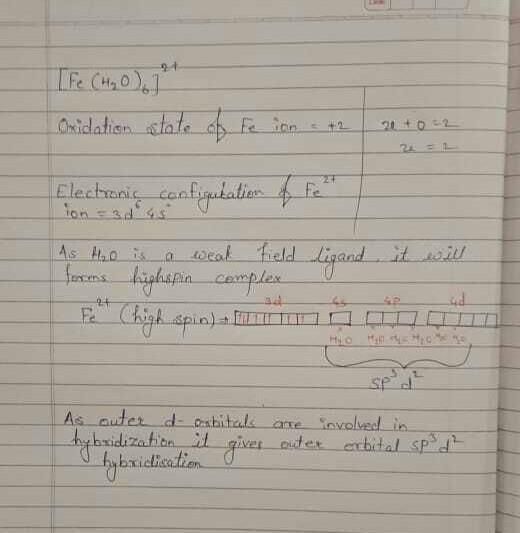 [Fe(H₂O)₆]²⁺
Oxidation state of Fe ion = +2
x + 0 = 2
x = 2
Electronic configuration of Fe²⁺
ion = 3d⁶ 4s⁰
As H₂O is a weak field ligand, it will
forms highspin complex
3d 4s 4p 4d
Fe²⁺ (high spin) →
H₂O H₂O H₂O H₂O H₂O H₂O
sp³d²
As outer d-orbitals are involved in
hybridization it gives outer orbital sp³d²
hybridisation